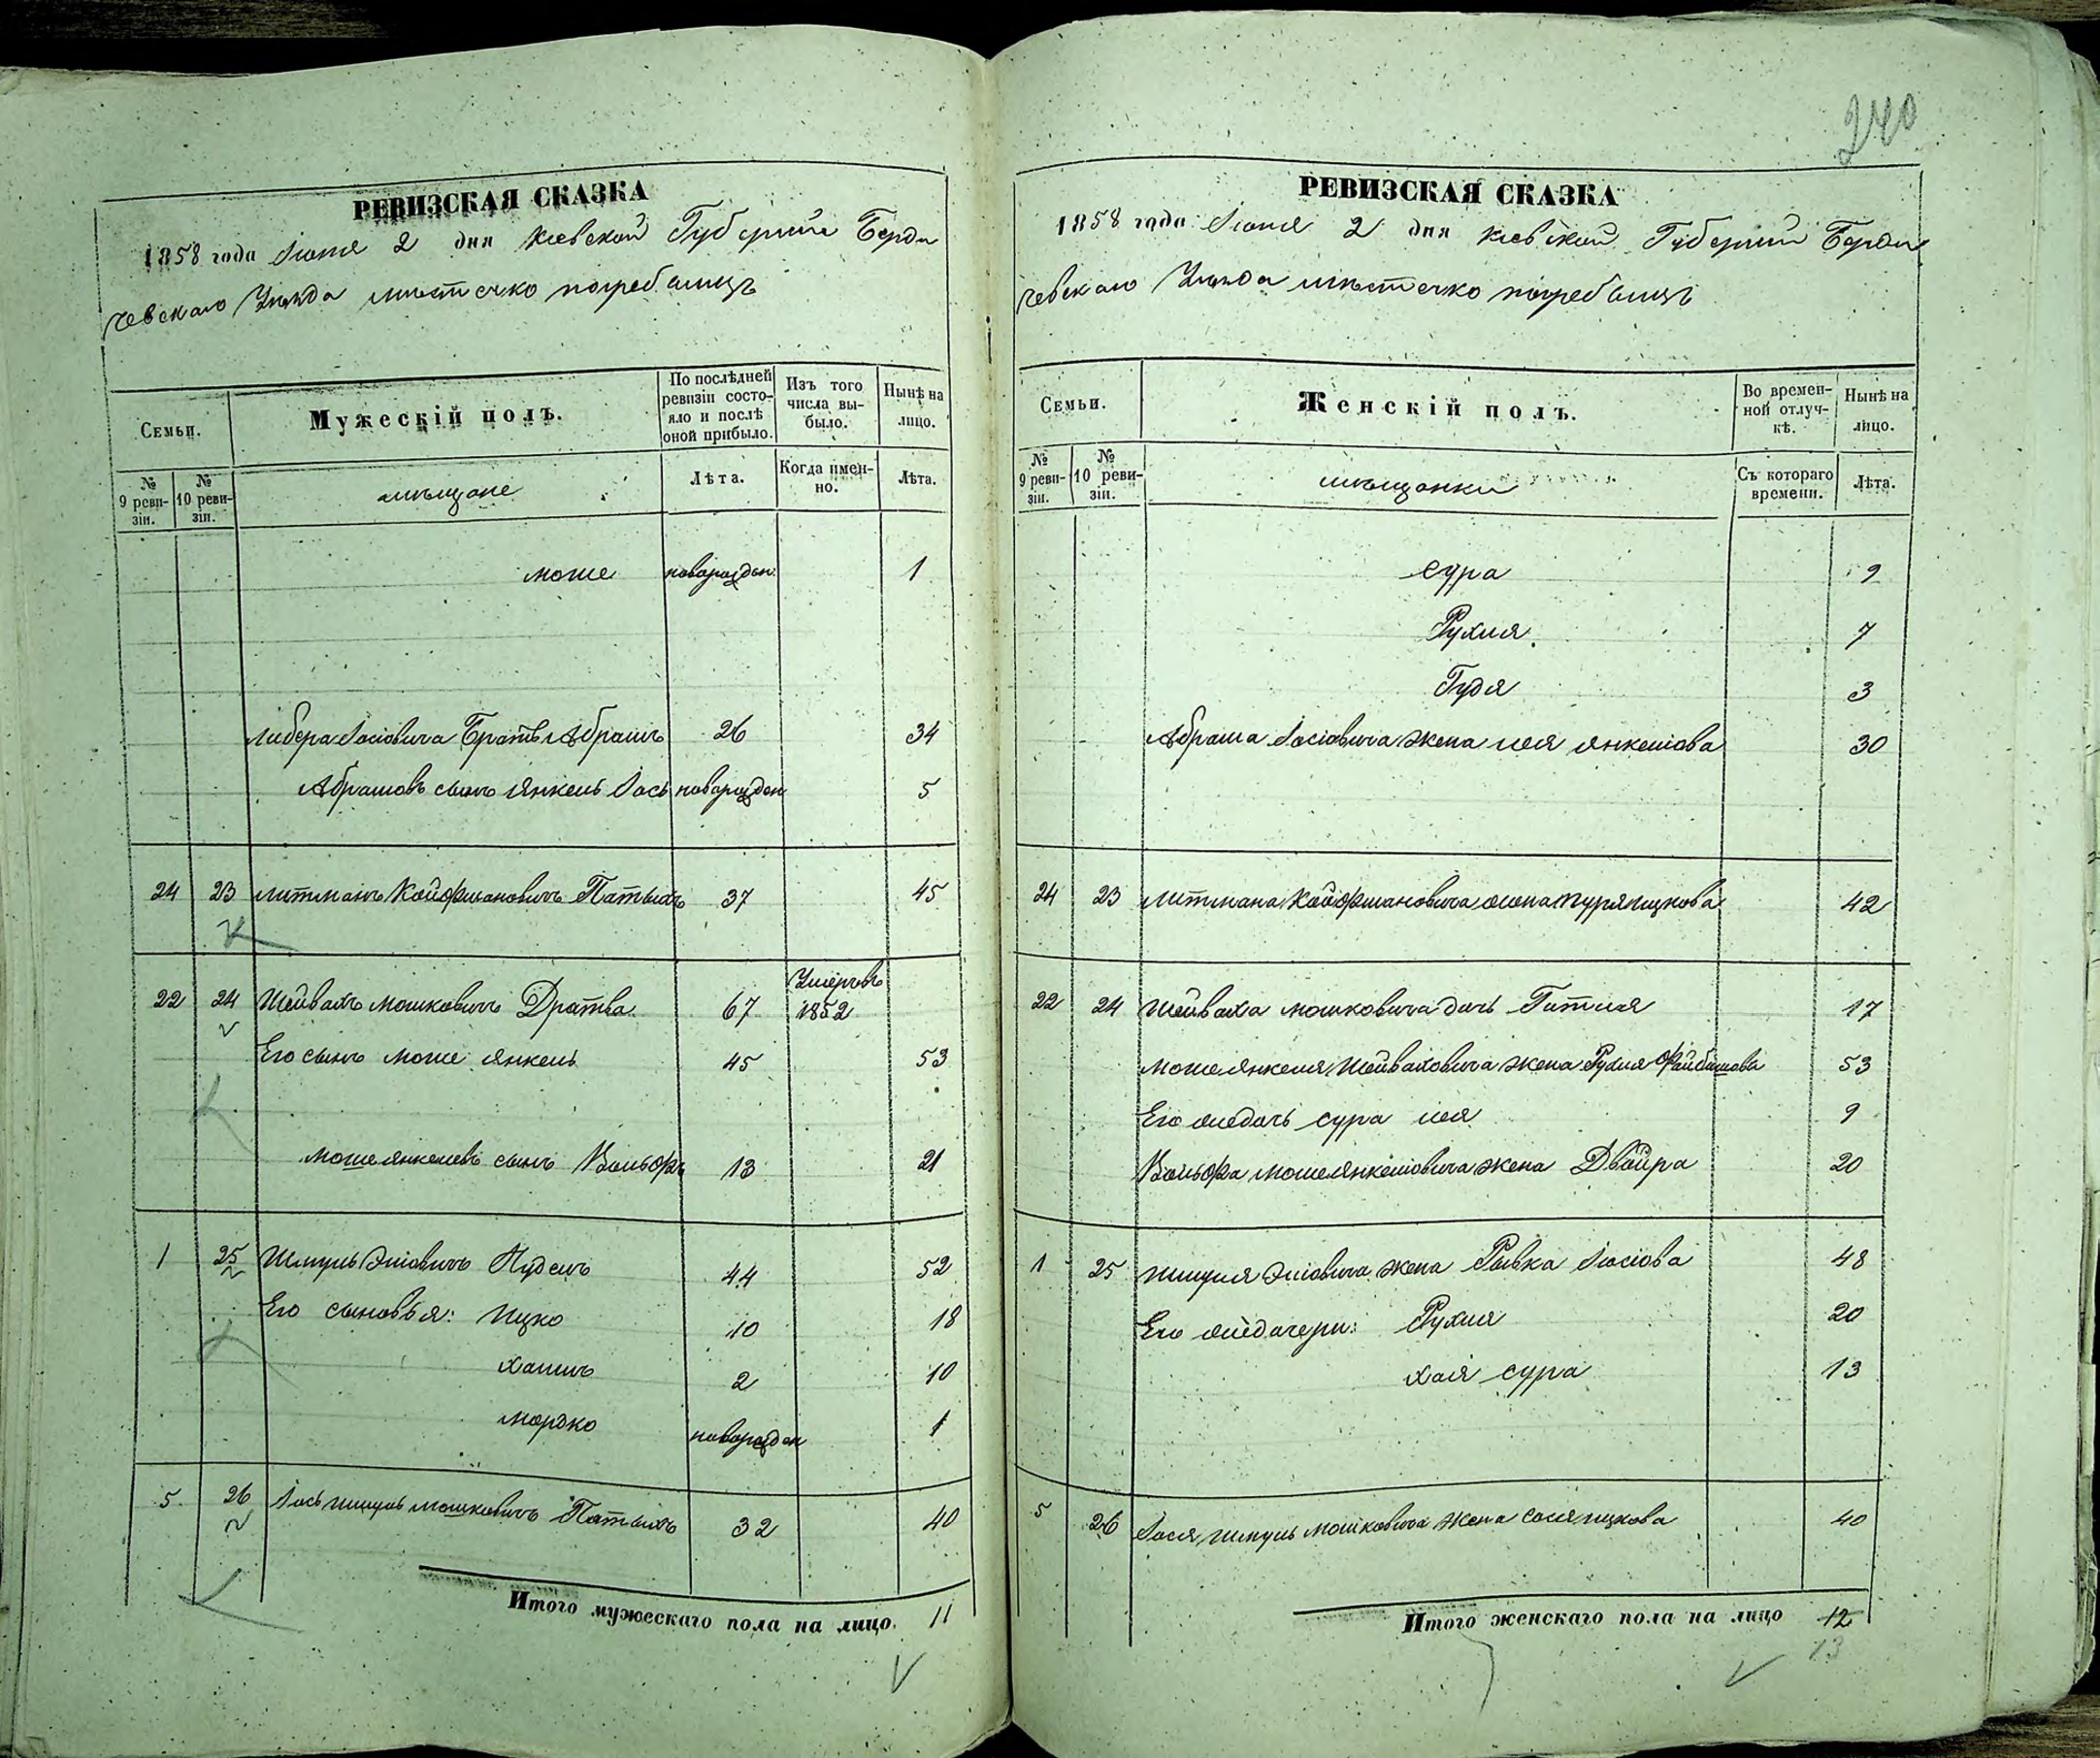 240
РЕВИЗСКАЯ СКАЗКА
1858 года Іюня 2 дня Кіевской Губерніи Берди
чевскаго Уѣзда мѣстечко погребыщъ
Семьи.
Мужескій полъ.
По послѣдней ревизіи состояло и послѣ оной прибыло.
Изъ того числа выбыло.
Ныне на лицо.
№ 9 ревизіи.
№ 10 ревизіи.
мѣщане
Лѣта.
Когда именно.
Лѣта.
моше новорожден 1
Либера Іосіовича Братъ Абрамъ 26 34
Абрамовъ сынъ янкель Іось новорожден 5
24 23 литманъ Койфмановичъ 37 45
22 24 Шейвахъ мошковичъ Дратва 67 Умеръ въ 1852
Его сынъ моше янкель 45 53
мошеянкелевъ сынъ Вольфъ 13 21
1 25 Шмуль Эліовичъ 44 52
Его сыновья: Ицко 10 18
хаимъ 2 10
мордко новорожден 1
5 26 Іось шмуль мошковичъ 32 40
Итого мужескаго пола на лицо. 11
РЕВИЗСКАЯ СКАЗКА
1858 года Іюня 2 дня Кіевской Губерніи Берди
чевскаго Уѣзда мѣстечко погребыщъ
Семьи.
Женскій полъ.
Во временной отлучкѣ.
Ныне на лицо.
№ 9 ревизіи.
№ 10 ревизіи.
мѣщанки
Съ котораго времени.
Лѣта.
сура 9
Рухля 7
Гудя 3
Абрама Іосіовича жена лея янкеліова 30
24 23 литмана Койфмановича жена 42
22 24 Шейваха мошковича дочь Гитля 17
мошеянкеля Шейваховича жена Рухля Файбишова 53
Его жедочь сура лея 9
Вольфа мошеянкеліовича жена Двойра 20
1 25 шмуля Эліовича жена Ривка Іосіова 48
Его жедочери: Рухля 20
хая сура 13
5 26 Іося шмуль мошковича жена сося ицкова 40
Итого женскаго пола на лицо 12
13